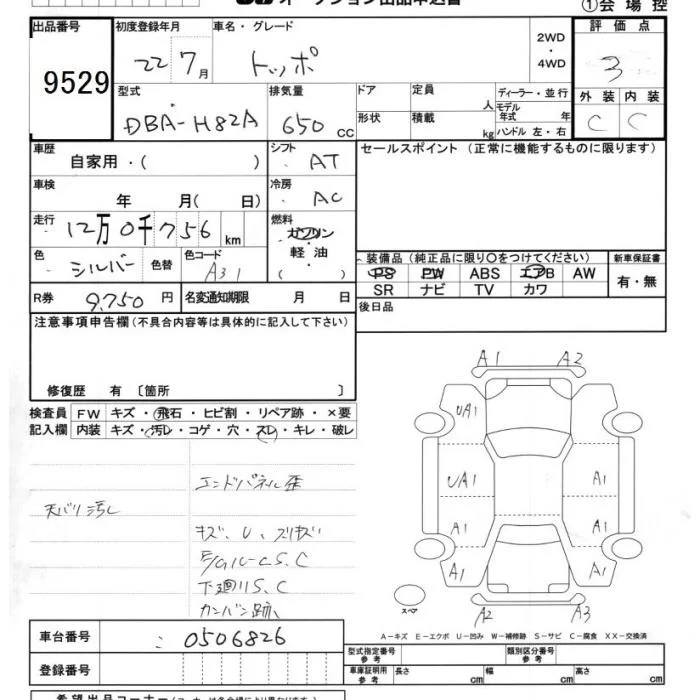 オークション出品申込書
①会場控
出品番号 初度登録年月 車名・グレード 評価点
9529
22 7月 トッポ 2WD ・ 4WD 3
型式 排気量 ドア 定員 人 ディーラー・並行 外装 内装
DBA-H82A 650 cc 形状 積載 kg モデル年式 年 ハンドル 左・右 C C
車歴 自家用・( ) シフト AT セールスポイント (正常に機能するものに限ります)
車検 年 月( 日) 冷房 AC
走行 12万0千756 km 燃料 ガソリン 軽油 ( )
色 シルバー 色替 色コード A31
装備品 (純正品に限り〇をつけてください) 新車保証書
PS PW ABS エアB AW 有・無
SR ナビ TV カワ
R券 9.750 円 名変通知期限 月 日 後日品
注意事項申告欄 (不具合内容等は具体的に記入して下さい)
修復歴 有 〔箇所 〕
検査員 FW キズ・飛石・ヒビ割・リペア跡・×要
記入欄 内装 キズ・汚レ・コゲ・穴・スレ・キレ・破レ
エンドパネル歪
天バリ汚レ
キズ、U、スリキズ
下廻りS、C
カンバン跡
A1 A2
UA1
UA1 A1
A1 A1
A1 A1
スペア
A2 A3
A−キズ E−エクボ U−凹み W−補修跡 S−サビ C−腐食 XX−交換済
車台番号 0506826
登録番号
型式指定番号 参考 類別区分番号 参考
車庫証明用 参考 長さ cm 幅 cm 高さ cm
希望出品コーナー